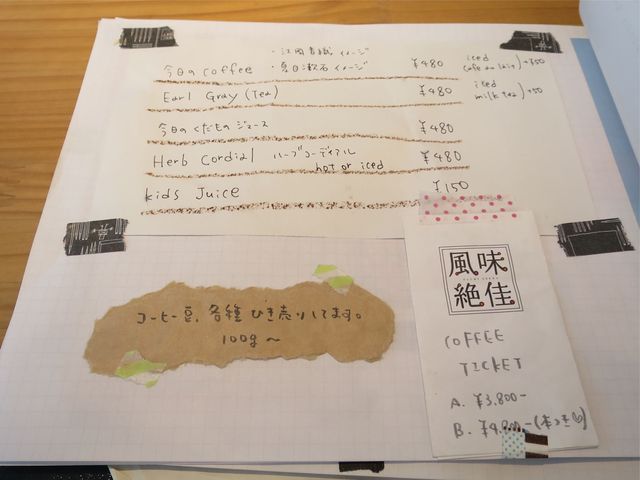 ・江國香織イメージ
今日のcoffee ・夏目漱石イメージ ¥480
iced
cafe au lait)+50
Earl Gray (Tea) ¥480
iced
milk tea)+50
今日のくだものジュース ¥480
Herb Cordial ハーブコーディアル ¥480
hot or iced
kids Juice ¥150
コーヒー豆、各種ひき売りしてます。
100g〜
風味
絶佳
COFFEE
TICKET
A. ¥3.800-
B. ¥4.800-(本つき♡)